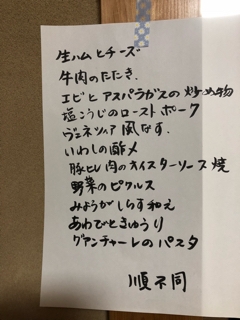 生ハムとチーズ
牛肉のたたき.
エビとアスパラガスの炒め物
塩こうじのローストポーク
ヴェネツィア風なす.
いわしの酢〆
豚ヒレ肉のオイスターソース焼
野菜のピクルス
みょうがしらす和え
あわびときゅうり
グアンチャーレのパスタ
順不同